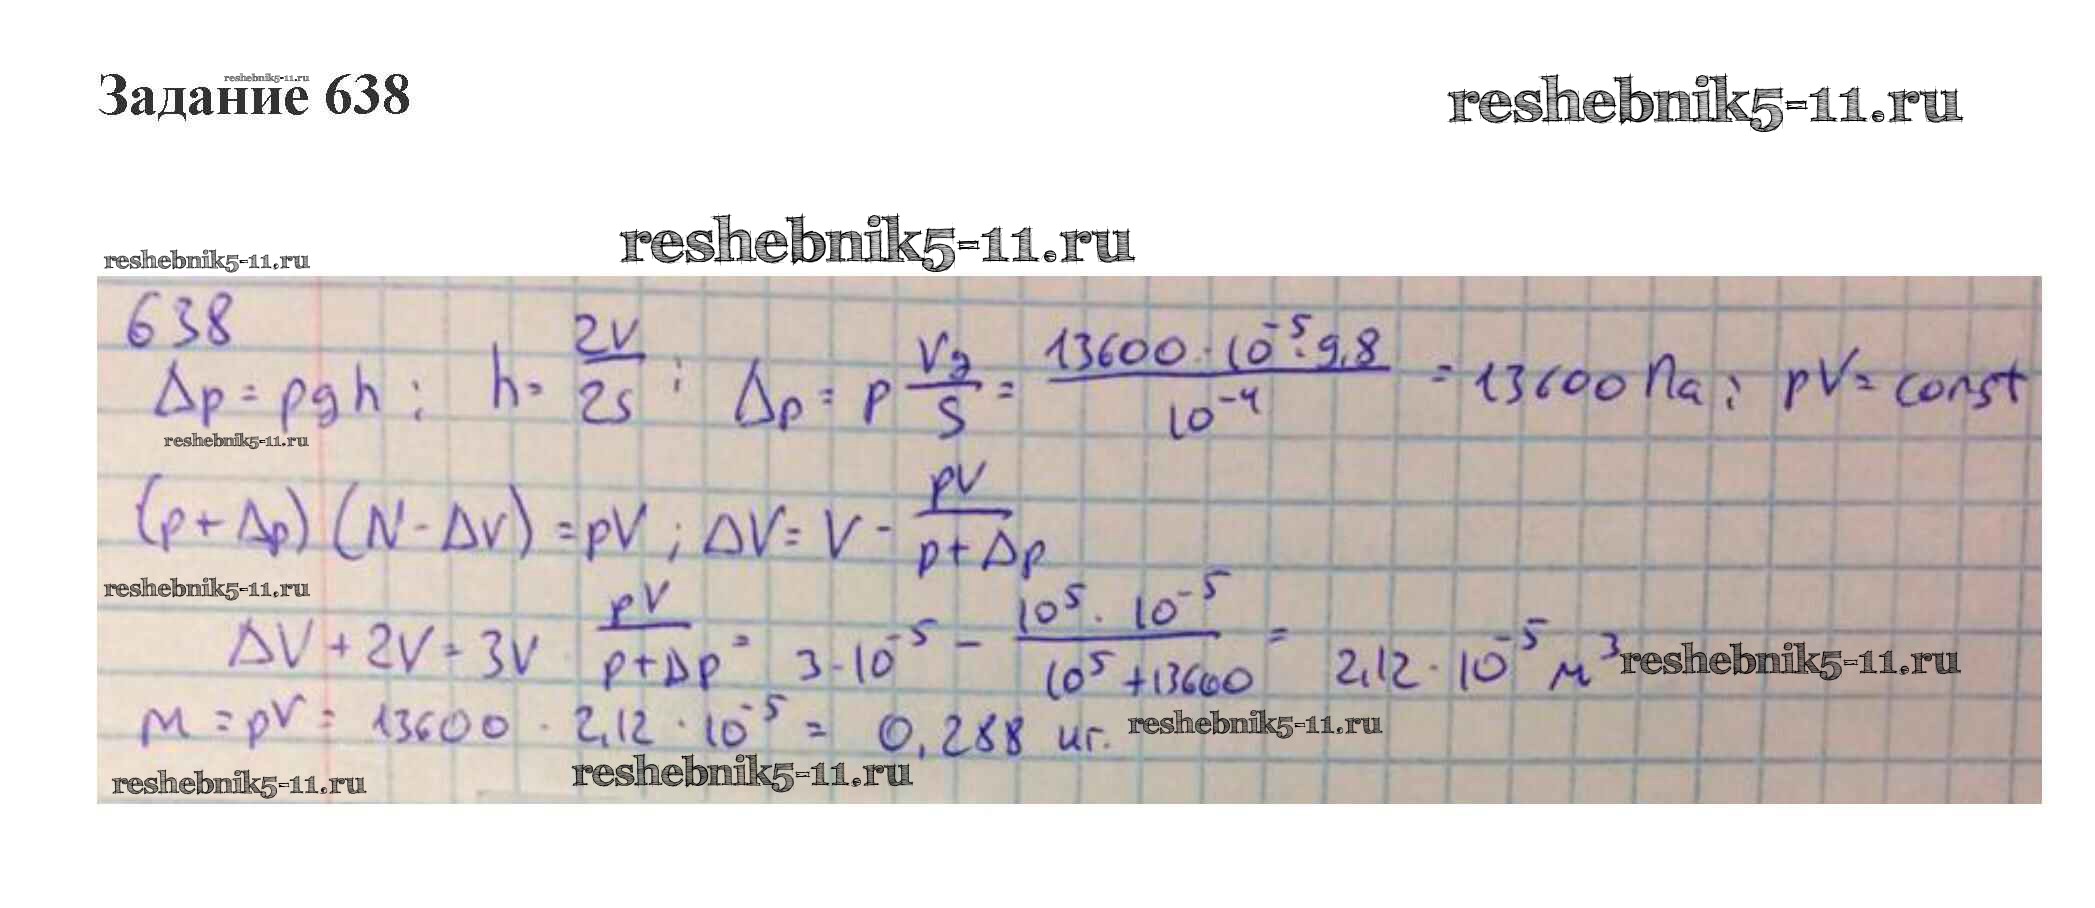 Задание 638
reshebnik5-11.ru
reshebnik5-11.ru
reshebnik5-11.ru
reshebnik5-11.ru
638
Δp = ρgh ; h = 2V/2S ; Δp = ρ Vg/S = 13600 · 10⁻⁵ · 9,8 / 10⁻⁴ = 13600 Па ; pV = const
reshebnik5-11.ru
(p + Δp) (V - ΔV) = pV ; ΔV = V - pV/(p + Δp)
reshebnik5-11.ru
ΔV + 2V = 3V · pV/(p + Δp) = 3 · 10⁻⁵ - 10⁵ · 10⁻⁵ / (10⁵ + 13600) = 2,12 · 10⁻⁵ м³
reshebnik5-11.ru
m = ρV = 13600 · 2,12 · 10⁻⁵ = 0,288 кг.
reshebnik5-11.ru
reshebnik5-11.ru
reshebnik5-11.ru